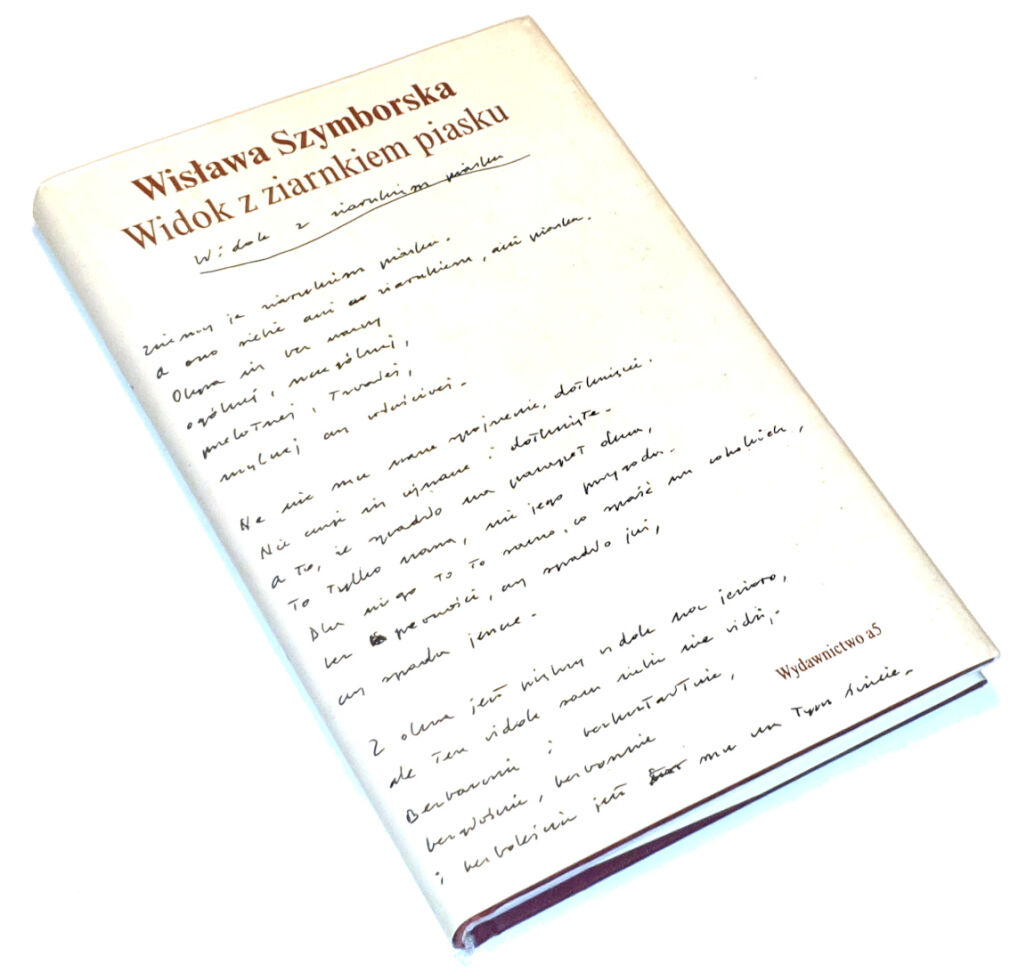 Wisława Szymborska
Widok z ziarnkiem piasku
Widok z ziarnkiem piasku
Zwiemy je ziarnkiem piasku.
A ono siebie ani ziarnkiem, ani piaskiem.
Obywa się bez nazwy
ogólnej, szczególnej,
przelotnej, trwałej,
mylnej czy właściwej.
Na nic mu nasze spojrzenie, dotknięcie.
Nie czuje się ujrzane i dotknięte.
A to, że spadło na parapet okna,
to tylko nasza, nie jego przygoda.
Dla niego to to samo, co spaść na cokolwiek,
bez pewności, czy spadło już,
czy spada jeszcze.
Z okna jest piękny widok na jezioro,
ale ten widok sam siebie nie widzi.
Bezbarwnie i bezkształtnie,
bezgłośnie, bezwonnie
i bezboleśnie jest mu na tym świecie.
Wydawnictwo a5